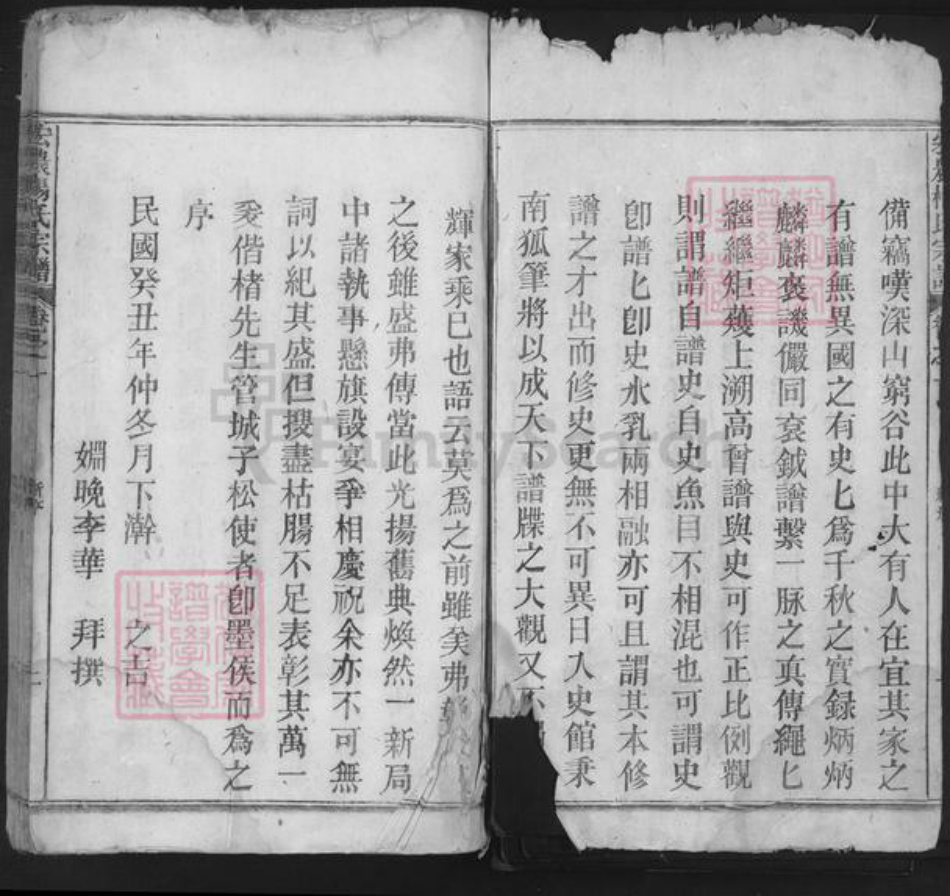 備竊嘆深山窮谷此中大有人在宜其家之
有譜無異國之有史匕爲千秋之實録炳炳
麟麟褒譏儼同袞鉞譜繫一脉之眞傳繩匕
繼繼矩矱上溯高曾譜與史可作正比例觀
則謂譜自譜史自史魚目不相混也可謂史
卽譜匕卽史水乳兩相融亦可且謂其本修
譜之才出而修史更無不可異日入史館秉
南狐筆將以成天下譜牒之大觀又不
輝家乘已也語云莫爲之前雖美弗
之後雖盛弗傳當此光揚舊典煥然一新局
中諸執事懸旗設宴爭相慶祝余亦不可無
詞以紀其盛但搜盡枯腸不足表彰其萬一
爰偕楮先生管城子松使者卽墨侯而爲之
序
民國癸丑年仲冬月下澣 之吉
姻晚李華 拜撰
氏宗譜
FamilySearch